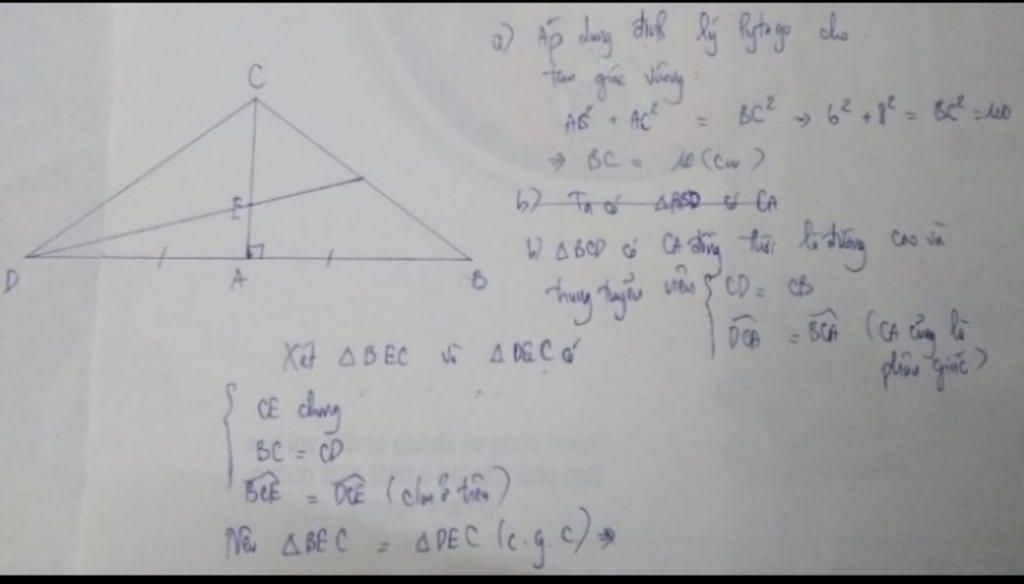 a) Áp dụng định lý Pytago cho
tam giác vuông:
AB² + AC² = BC² → 6² + 8² = BC² = 100
→ BC = 10 (cm)
b) Ta có △ABD có CA
b) △BCD có CA đồng thời là đường cao và
trung tuyến nên { CD = CB
DCA = BCA (CA cũng là
phân giác)
C
E
D
A
B
Xét △BEC và △DEC có
CE chung
BC = CD
BCE = DCE (cm ở trên)
Nên △BEC = △DEC (c.g.c) →